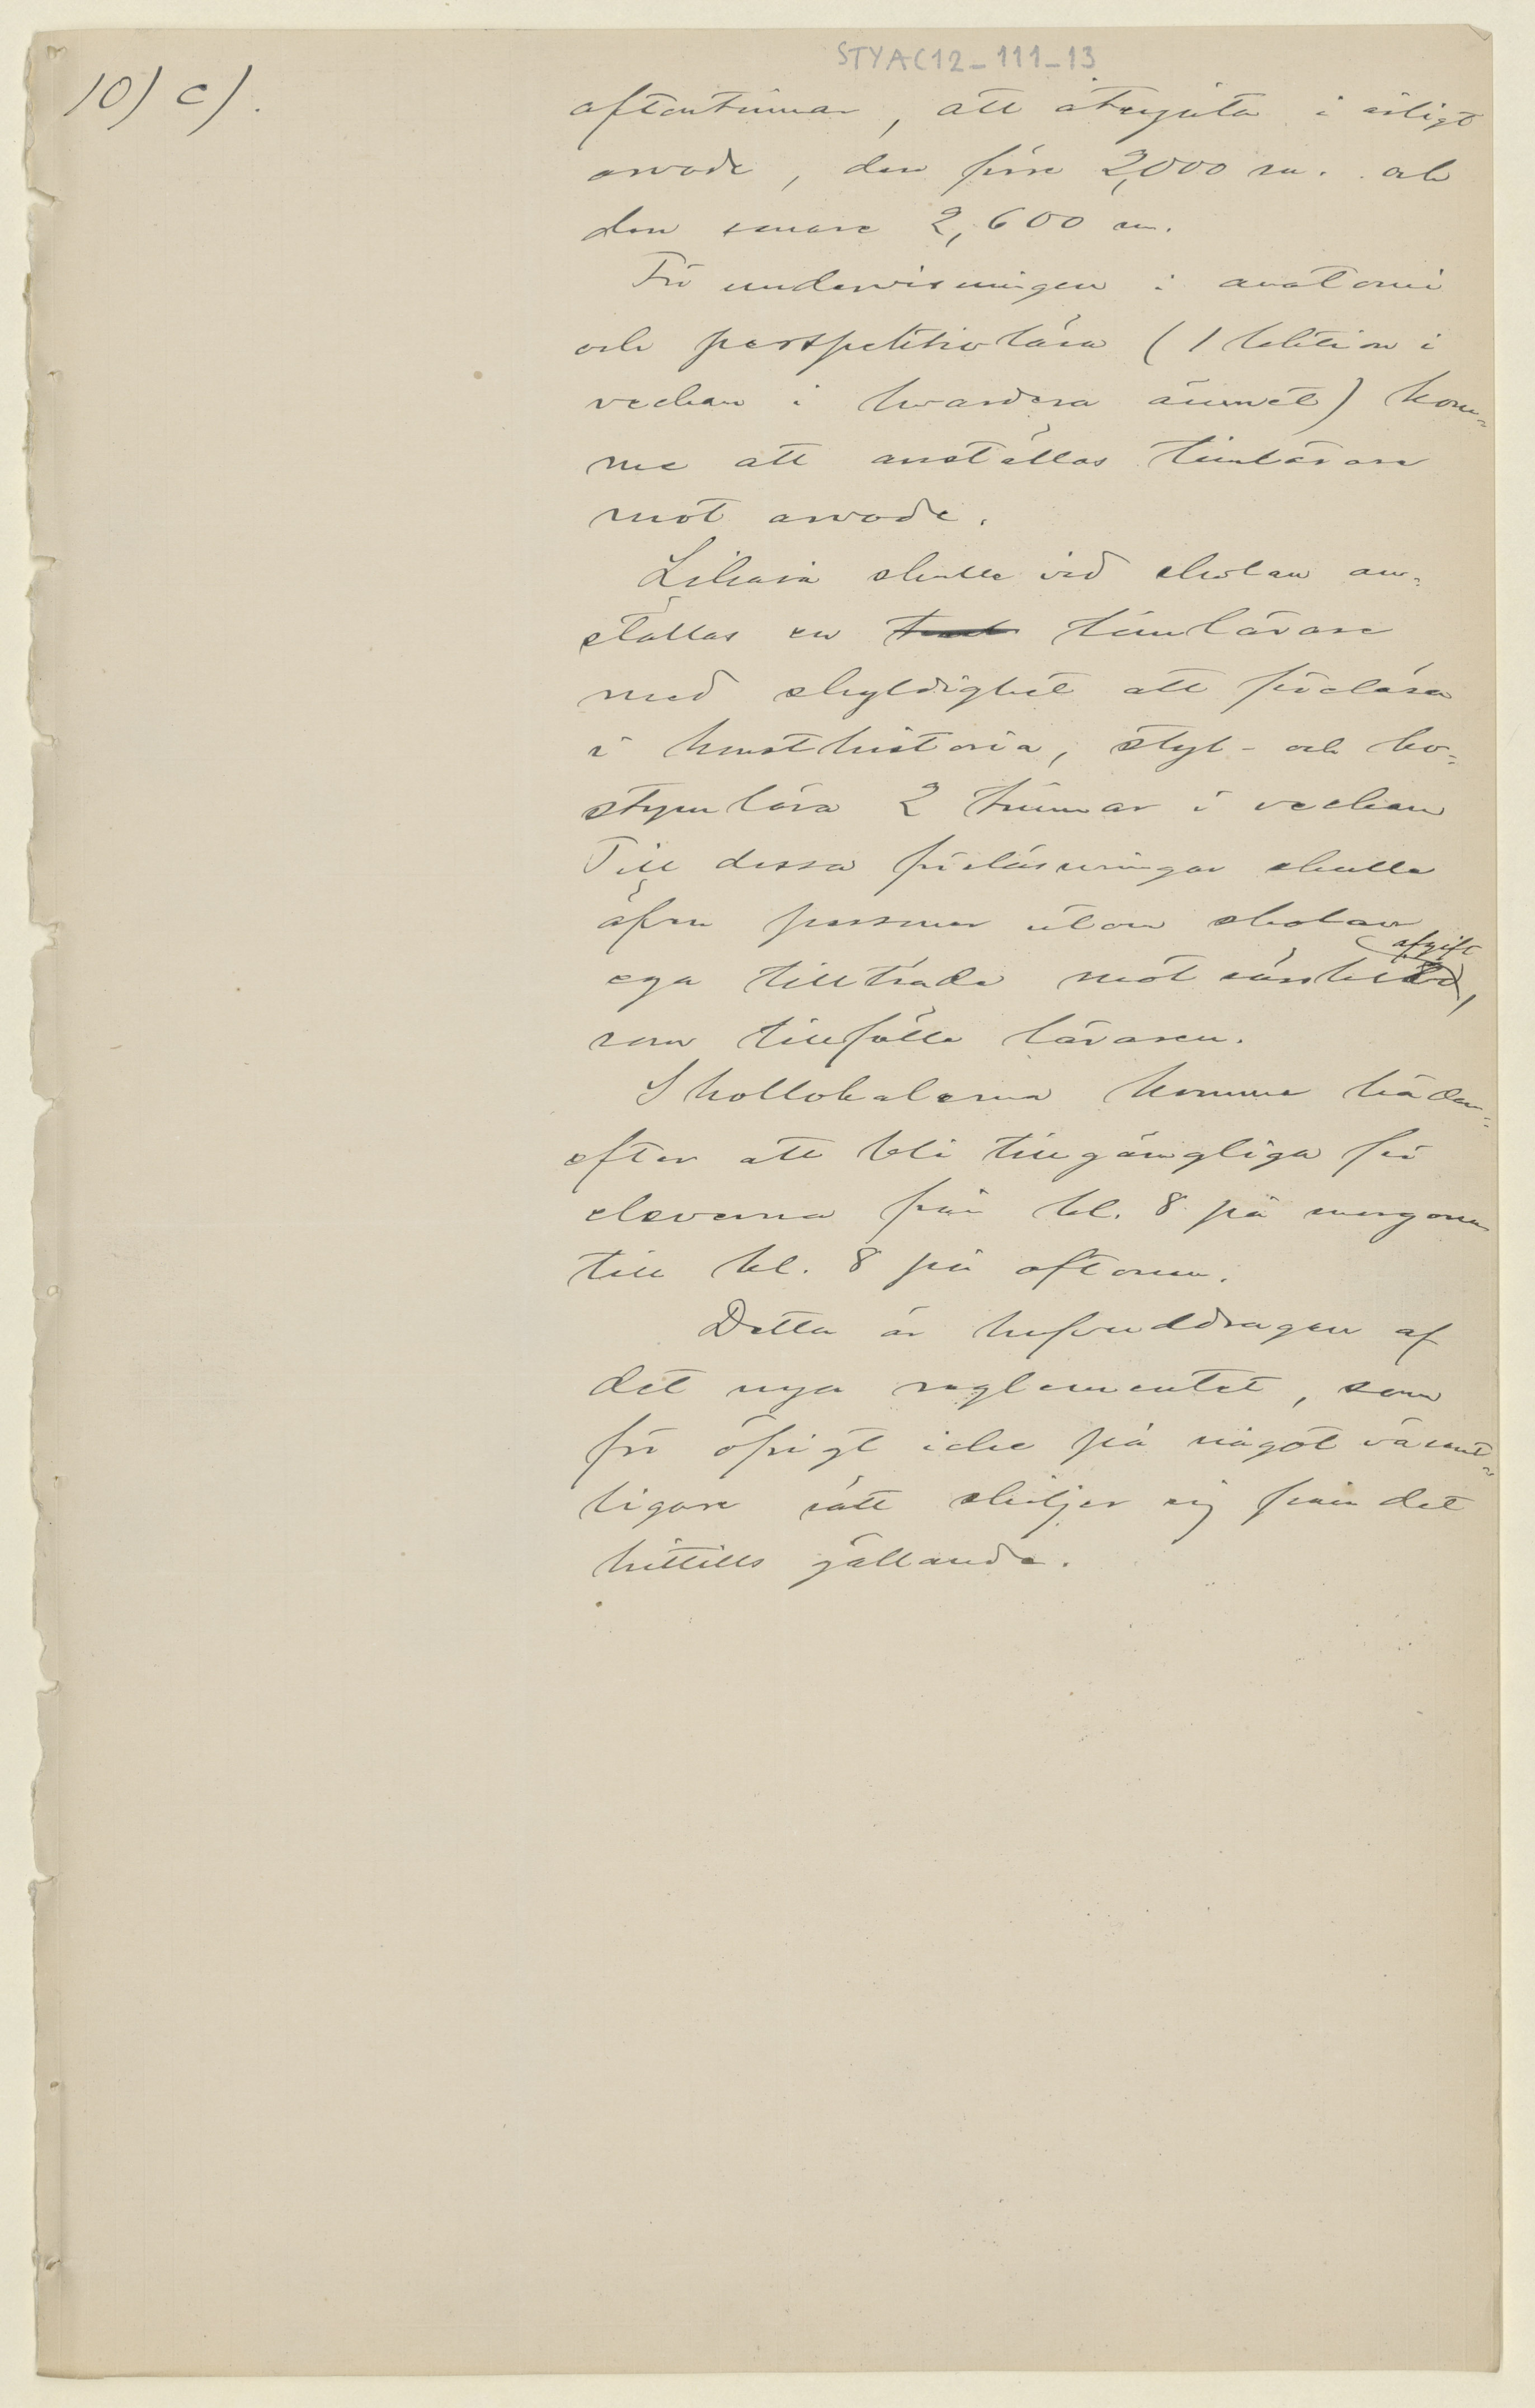 STYAC12-111-13
10) c).
aftontimmar, att åtnjuta i årligt
arvode, den förre 2,000 m. och
den senare 2,600 m.
För undervisningen i anatomi
och perspektivlära (1 lektion i
veckan i hvardera ämnet) kom-
me att anställas timlärare
mot arvode.
Likaså skulle vid skolan an-
ställas en timlärare
med skyldighet att föreläsa
i konsthistoria, styl- och ko-
stymlära 2 timmar i veckan
Till dessa föreläsningar skulle
äfven personer utom skolan
ega tillträde mot särskild afgift,
som tillfölle läraren.
Skollokalerna komme häda-
efter att bli tillgängliga för
eleverna från kl. 8 på morgonen
till kl. 8 på aftonen.
Detta är hufvuddragen af
det nya reglementet, som
för öfrigt icke på något väsent-
ligare sätt skiljer sig från det
hittills gällande.